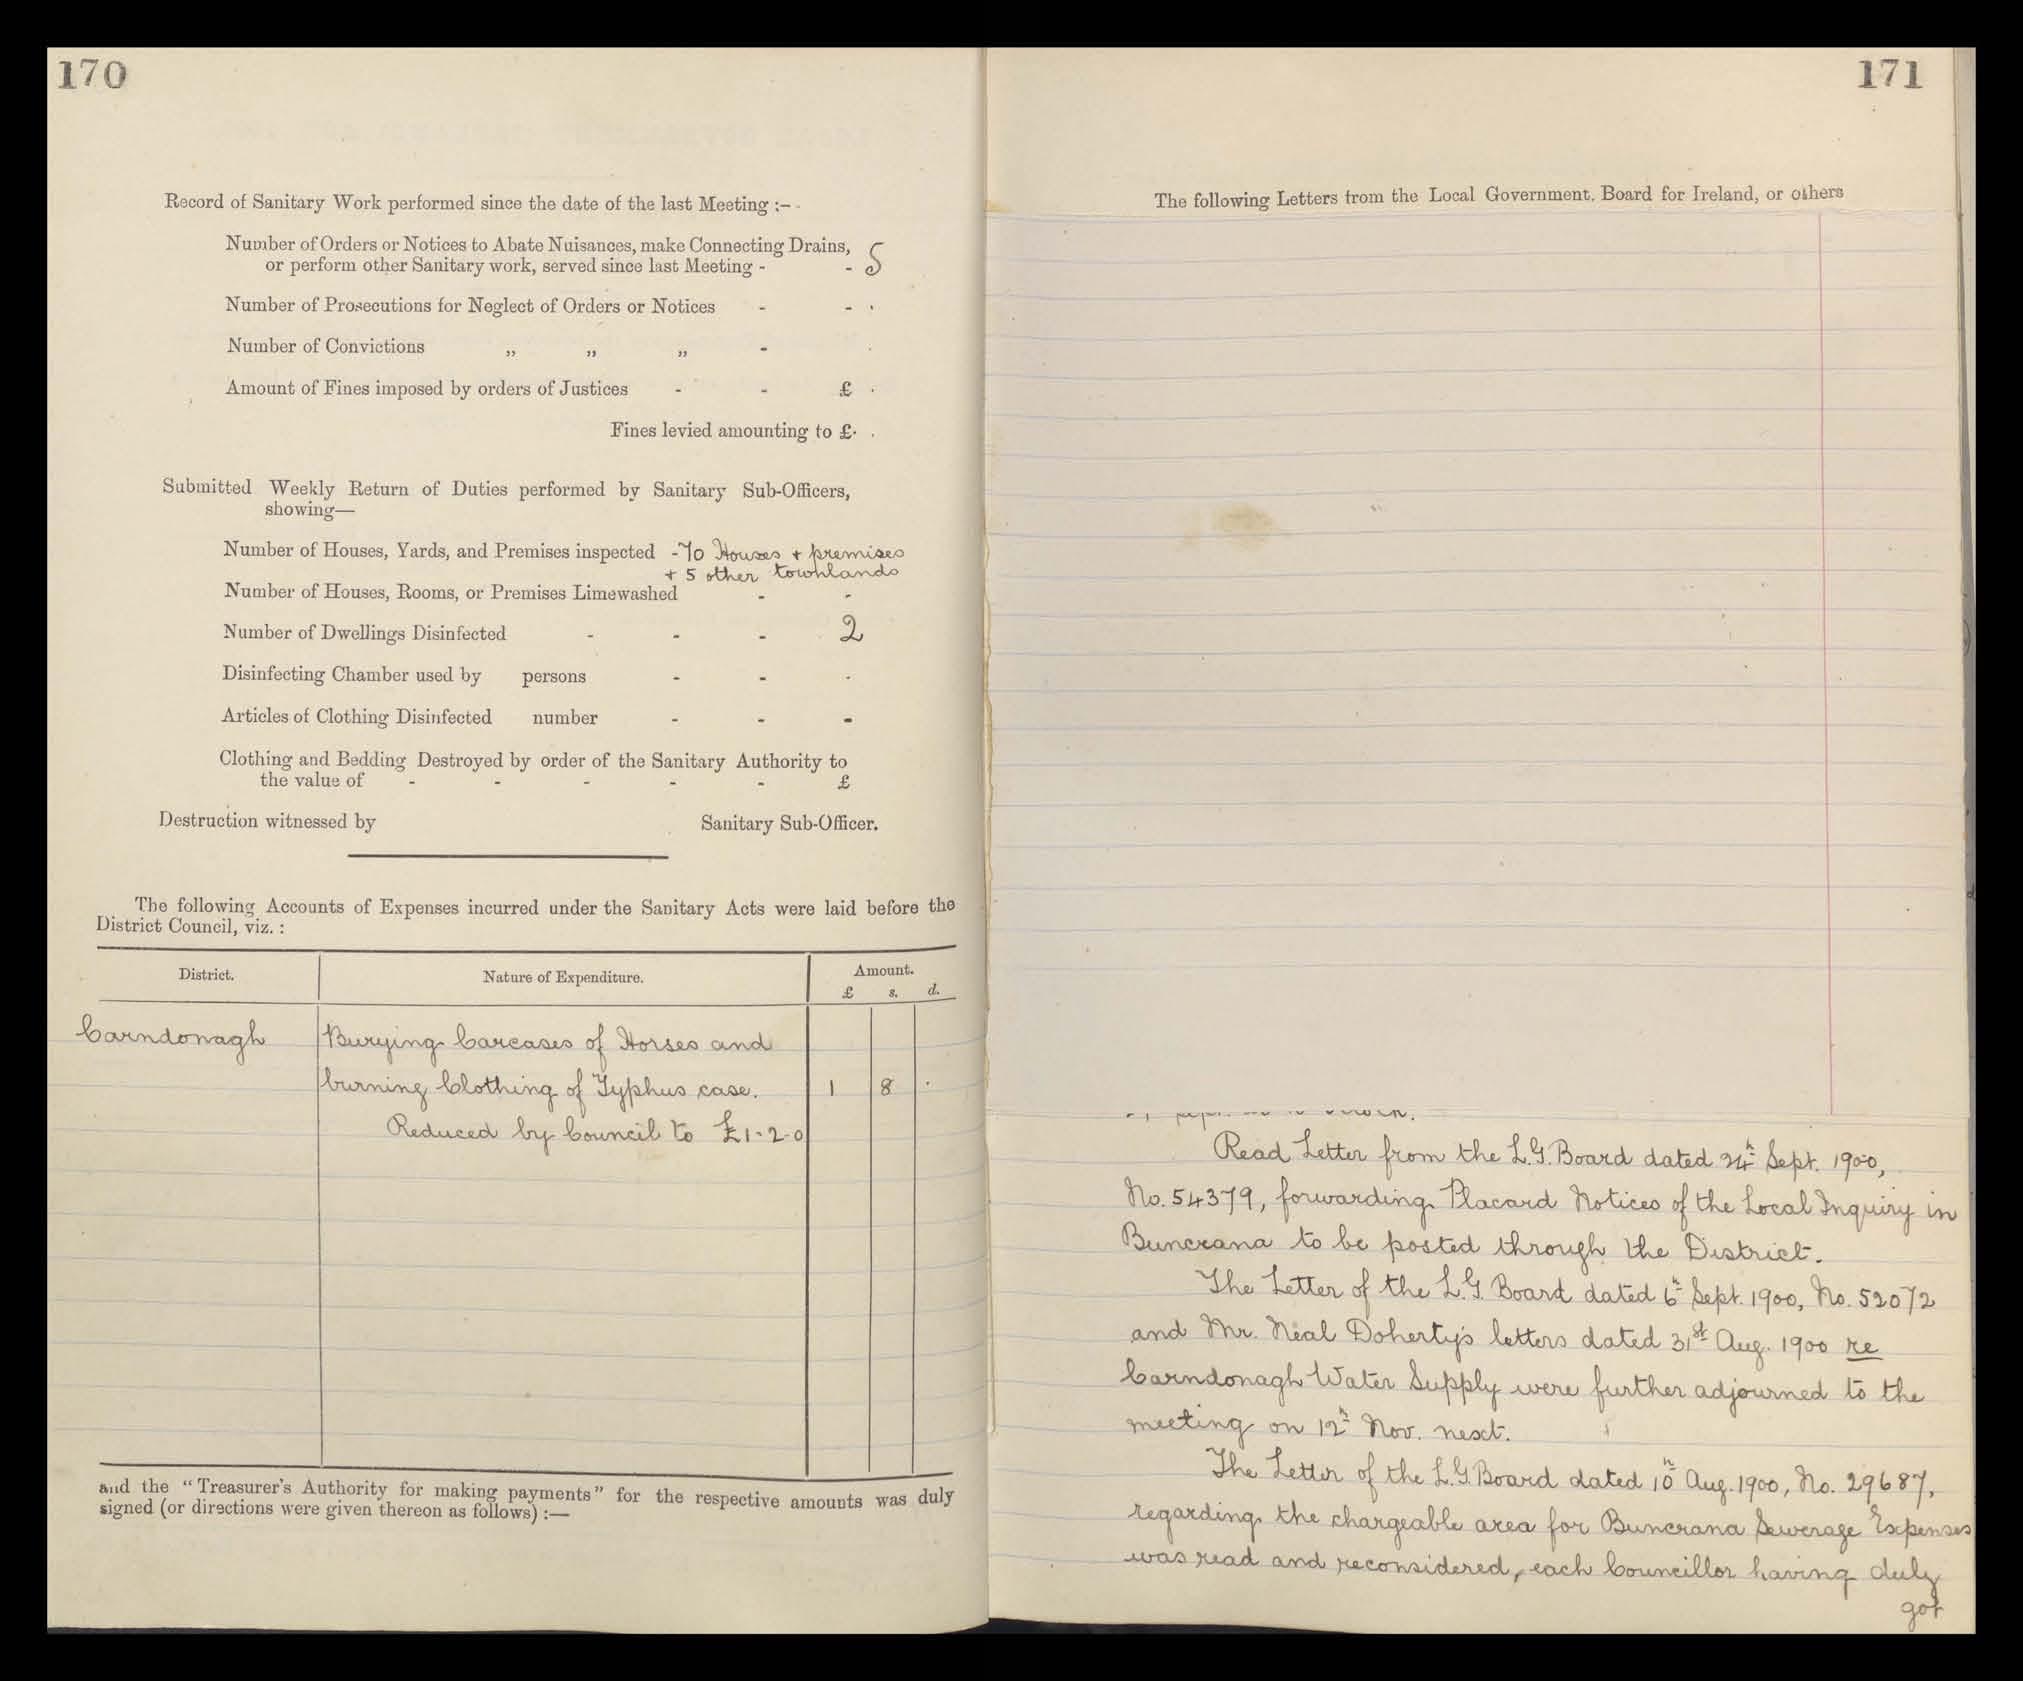 170
Record of Sanitary Work performed since the date of the last Meeting :-
Number of Orders or Notices to Abate Nuisances, make Connecting Drains,
or perform other Sanitary work, served since last Meeting - - 5
Number of Prosecutions for Neglect of Orders or Notices - -
Number of Convictions „ „ „ -
Amount of Fines imposed by orders of Justices - - £
Fines levied amounting to £
Submitted Weekly Return of Duties performed by Sanitary Sub-Officers,
showing—
Number of Houses, Yards, and Premises inspected - 70 Houses + premises
+ 5 other townlands
Number of Houses, Rooms, or Premises Limewashed - -
Number of Dwellings Disinfected - - - 2
Disinfecting Chamber used by persons - - -
Articles of Clothing Disinfected number - - -
Clothing and Bedding Destroyed by order of the Sanitary Authority to
the value of - - - - - £
Destruction witnessed by Sanitary Sub-Officer.
The following Accounts of Expenses incurred under the Sanitary Acts were laid before the
District Council, viz. :
District. Nature of Expenditure. Amount.
£ s. d.
Carndonagh Burying Carcases of Horses and
burning Clothing of Typhus case. 1 8 .
Reduced by Council to £1-2-0
and the "Treasurer's Authority for making payments" for the respective amounts was duly
signed (or directions were given thereon as follows) :—
171
The following Letters from the Local Government. Board for Ireland, or others
Read Letter from the L.G. Board dated 24th Sept. 1900,
No. 54379, forwarding Placard Notices of the Local Inquiry in
Buncrana to be posted through the District.
The Letter of the L.G. Board dated 6th Sept. 1900, No. 52072
and Mr. Neal Doherty's letters dated 31st Aug. 1900 re
Carndonagh Water Supply were further adjourned to the
meeting on 12th Nov. next.
The Letter of the L.G. Board dated 10th Aug. 1900, No. 29687,
regarding the chargeable area for Buncrana Sewerage Expenses
was read and reconsidered, each Councillor having duly
got